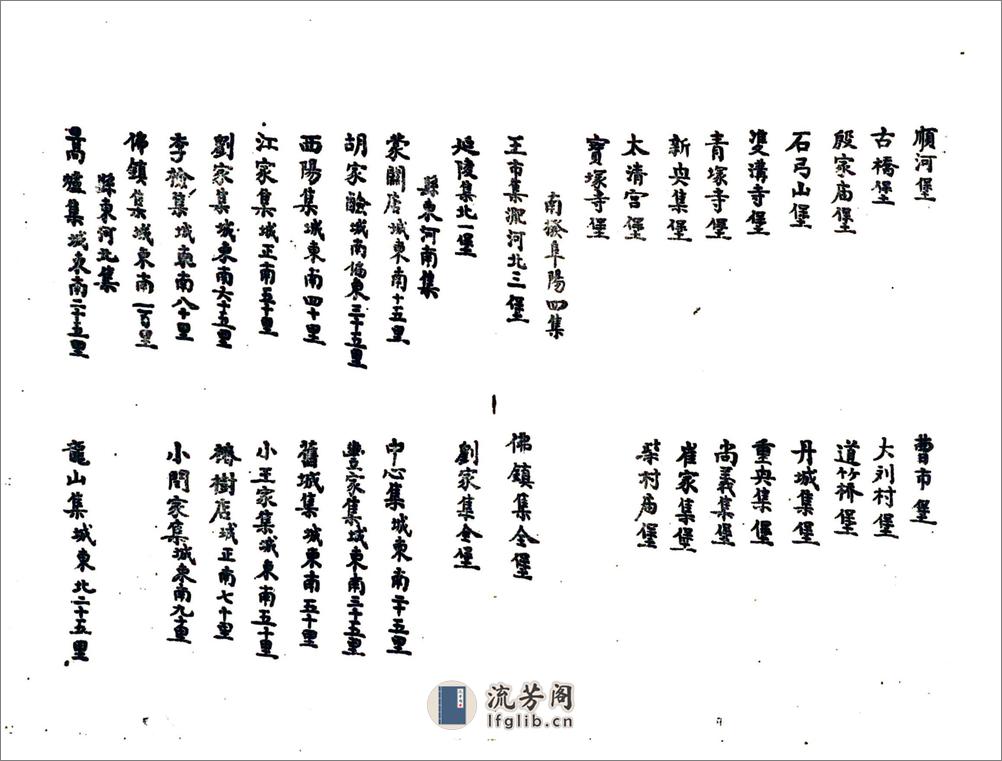 順河堡
曹市堡
古橋堡
大刘村堡
殷家庙堡
道竹桥堡
石弓山堡
丹城集堡
雙溝寺堡
重央集堡
青塚寺堡
尚義集堡
新央集堡
崔家集堡
太清宫堡
柴村庙堡
寶塚寺堡
南撥阜陽四集
王市集淝河北三堡
佛鎮集全堡
延陵集北一堡
劉家集全堡
縣東河南集
蒙關店城東南十五里
中心集城東南二十五里
胡家㑹城南偏東三十五里
豊家集城東南三十五里
西陽集城東南四十里
舊城集城東南五十里
江家集城正南五十里
小王家集城東南五十里
劉家集城東南六十五里
椿樹店城正南七十里
李集城東南八十里
小閆家集城東南九十里
佛鎮集城東南一百里
縣東河北集
高爐集城東南二十五里
龍山集城東北二十五里
流芳阁
lfglib.cn